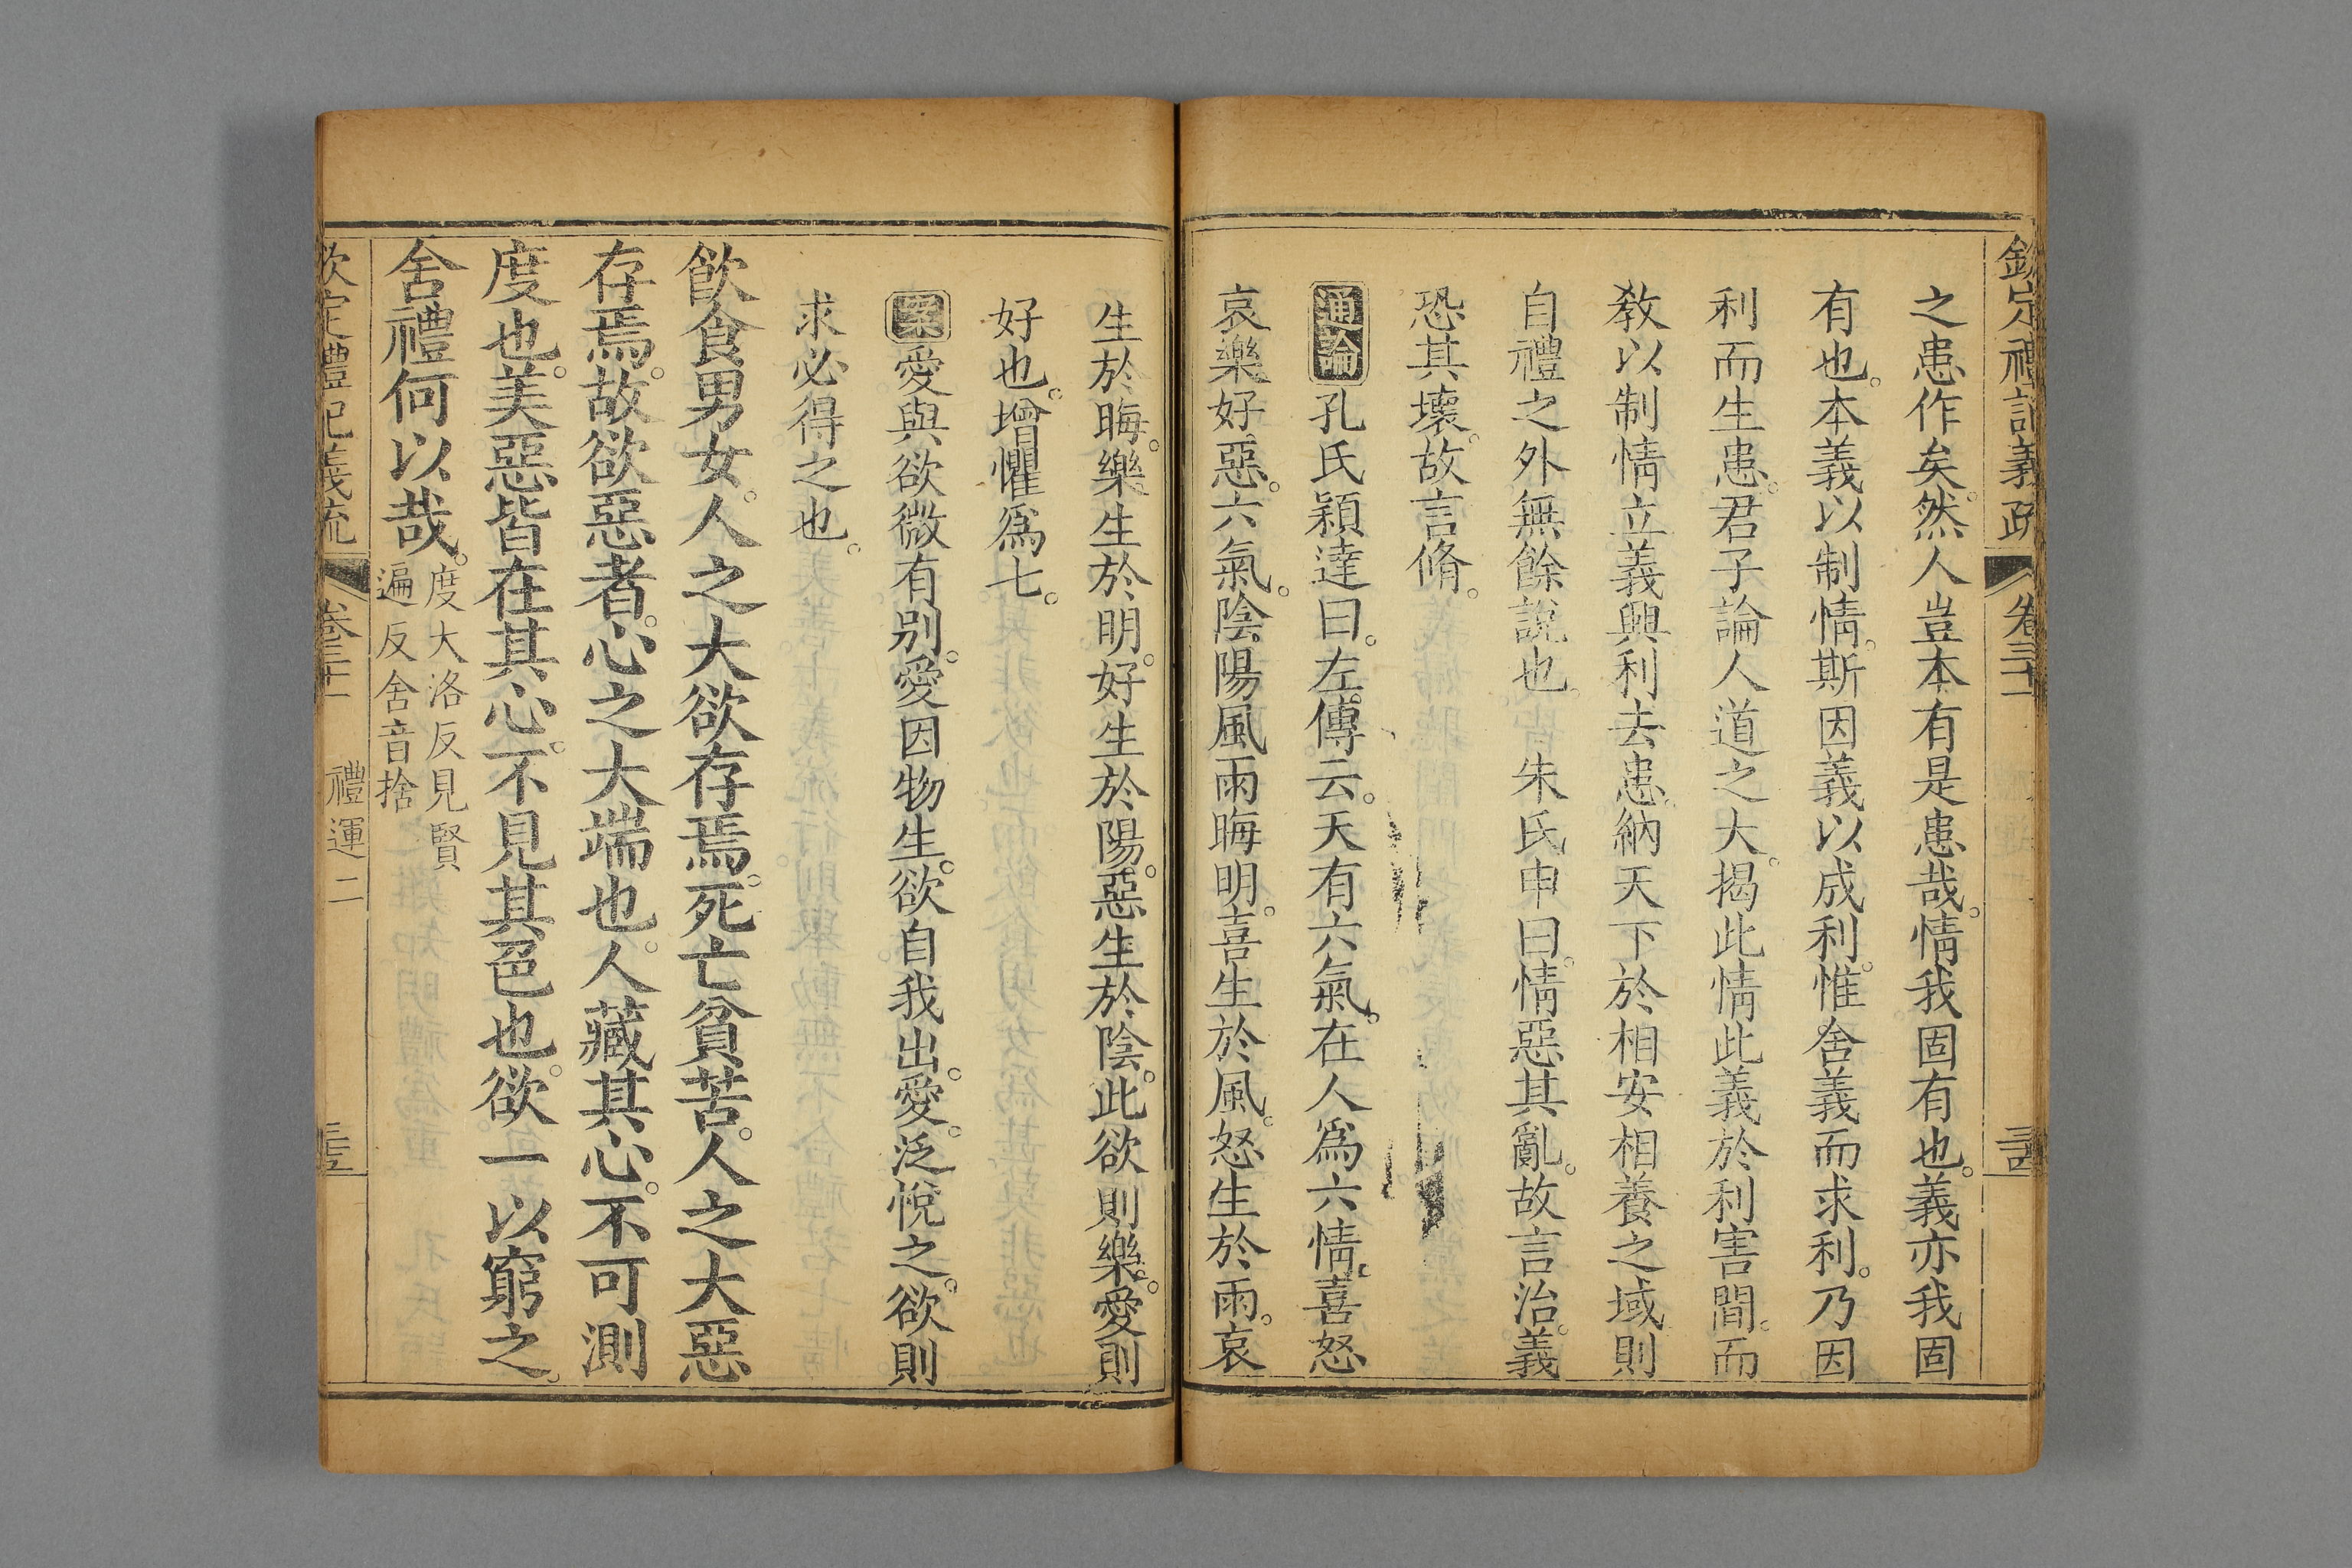 欽定禮記義疏 卷三十一 三酉
之患作矣。然人豈本有是患哉。情我固有也。義亦我固
有也。本義以制情。斯因義以成利。惟舍義而求利。乃因
利而生患。君子論人道之大。揭此情此義於利害間。而
教以制情立義興利去患。納天下於相安相養之域則
自禮之外無餘說也。 朱氏申曰。情惡其亂。故言治。義
恐其壞。故言脩。
通論孔氏穎達曰。左傳云。天有六氣。在人爲六情。喜怒
哀樂好惡。六氣。陰陽風雨晦明。喜生於風。怒生於雨。哀
生於晦。樂生於明。好生於陽。惡生於陰。此欲則樂。愛則
好也。增懼爲七。
案愛與欲微有別。愛因物生。欲自我出。愛。泛悅之。欲則
求必得之也。
飲食男女。人之大欲存焉。死亡貧苦。人之大惡
存焉。故欲惡者。心之大端也。人藏其心。不可測
度也。美惡皆在其心。不見其色也。欲一以窮之。
舍禮何以哉。度大洛反見賢
遍反舍音捨
欽定禮記義疏 卷三十一 禮運二